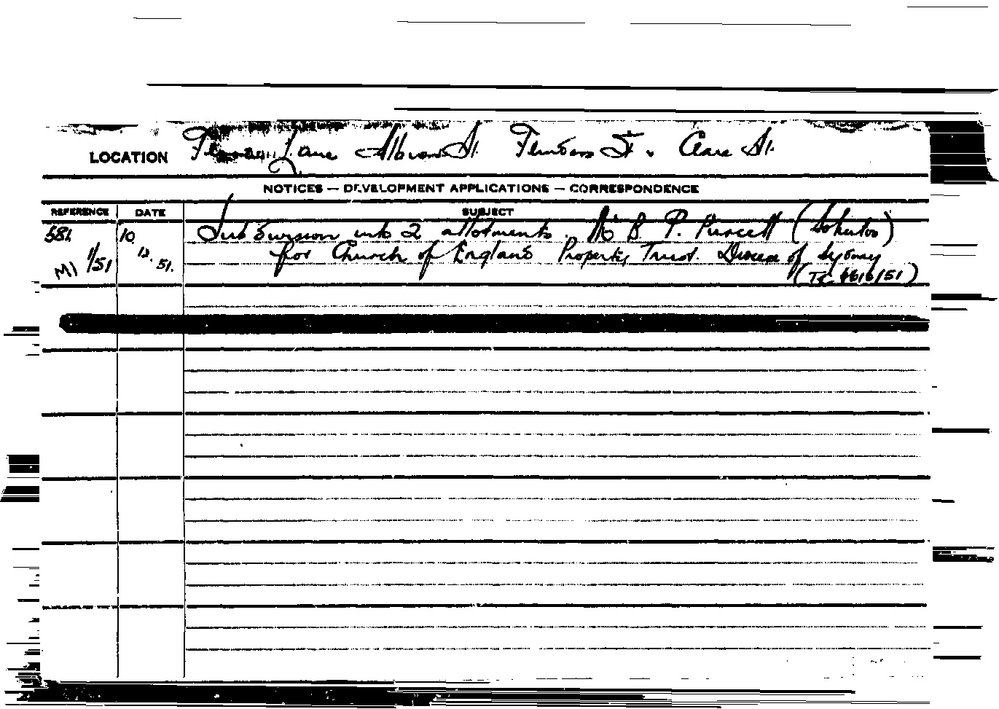 LOCATION Lane Albion St. Flinders St. Clare St.
NOTICES — DEVELOPMENT APPLICATIONS — CORRESPONDENCE
REFERENCE DATE SUBJECT
581. 10. Subdivision into 2 allotments. Mr B. P. Purcell (Solicitor)
M1 1/51 12. 51. for Church of England Property Trust. Diocese of Sydney